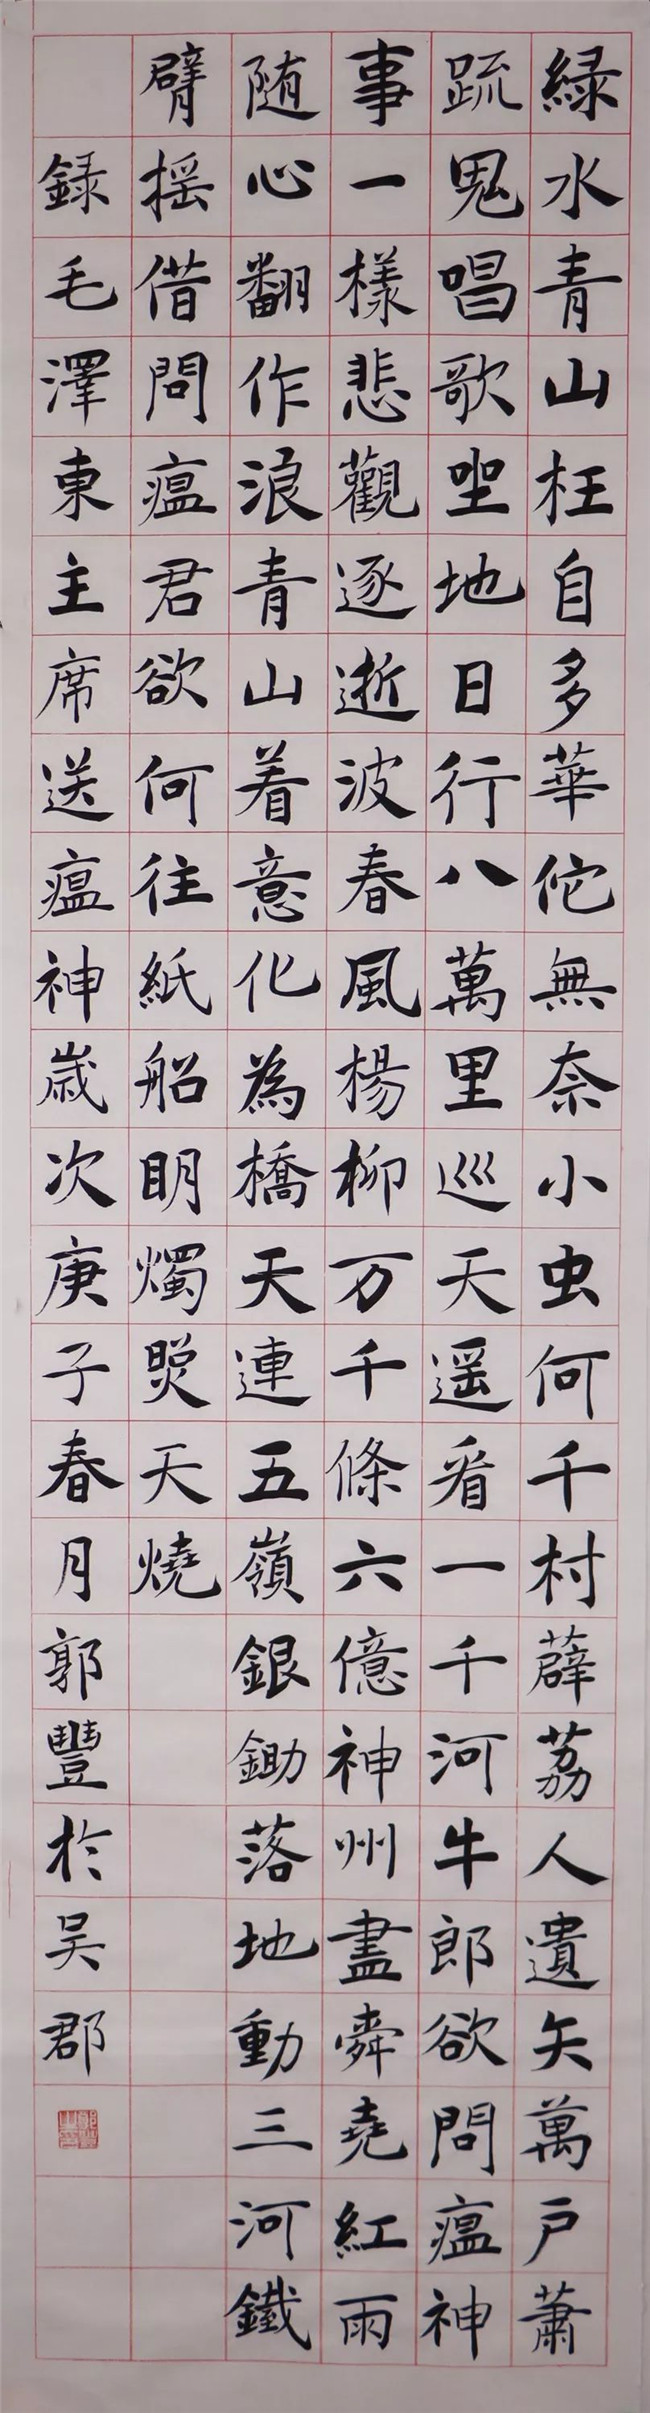 緑水青山枉自多華佗無奈小虫何千村薜荔人遺矢萬户蕭
疏鬼唱歌坐地日行八萬里巡天遥看一千河牛郎欲問瘟神
事一樣悲觀逐逝波春風楊柳万千條六億神州盡舜堯紅雨
随心翻作浪青山着意化為橋天連五嶺銀鋤落地動三河鐵
臂摇借問瘟君欲何往紙船明燭照天燒
録毛澤東主席送瘟神歲次庚子春月郭豐於吴郡